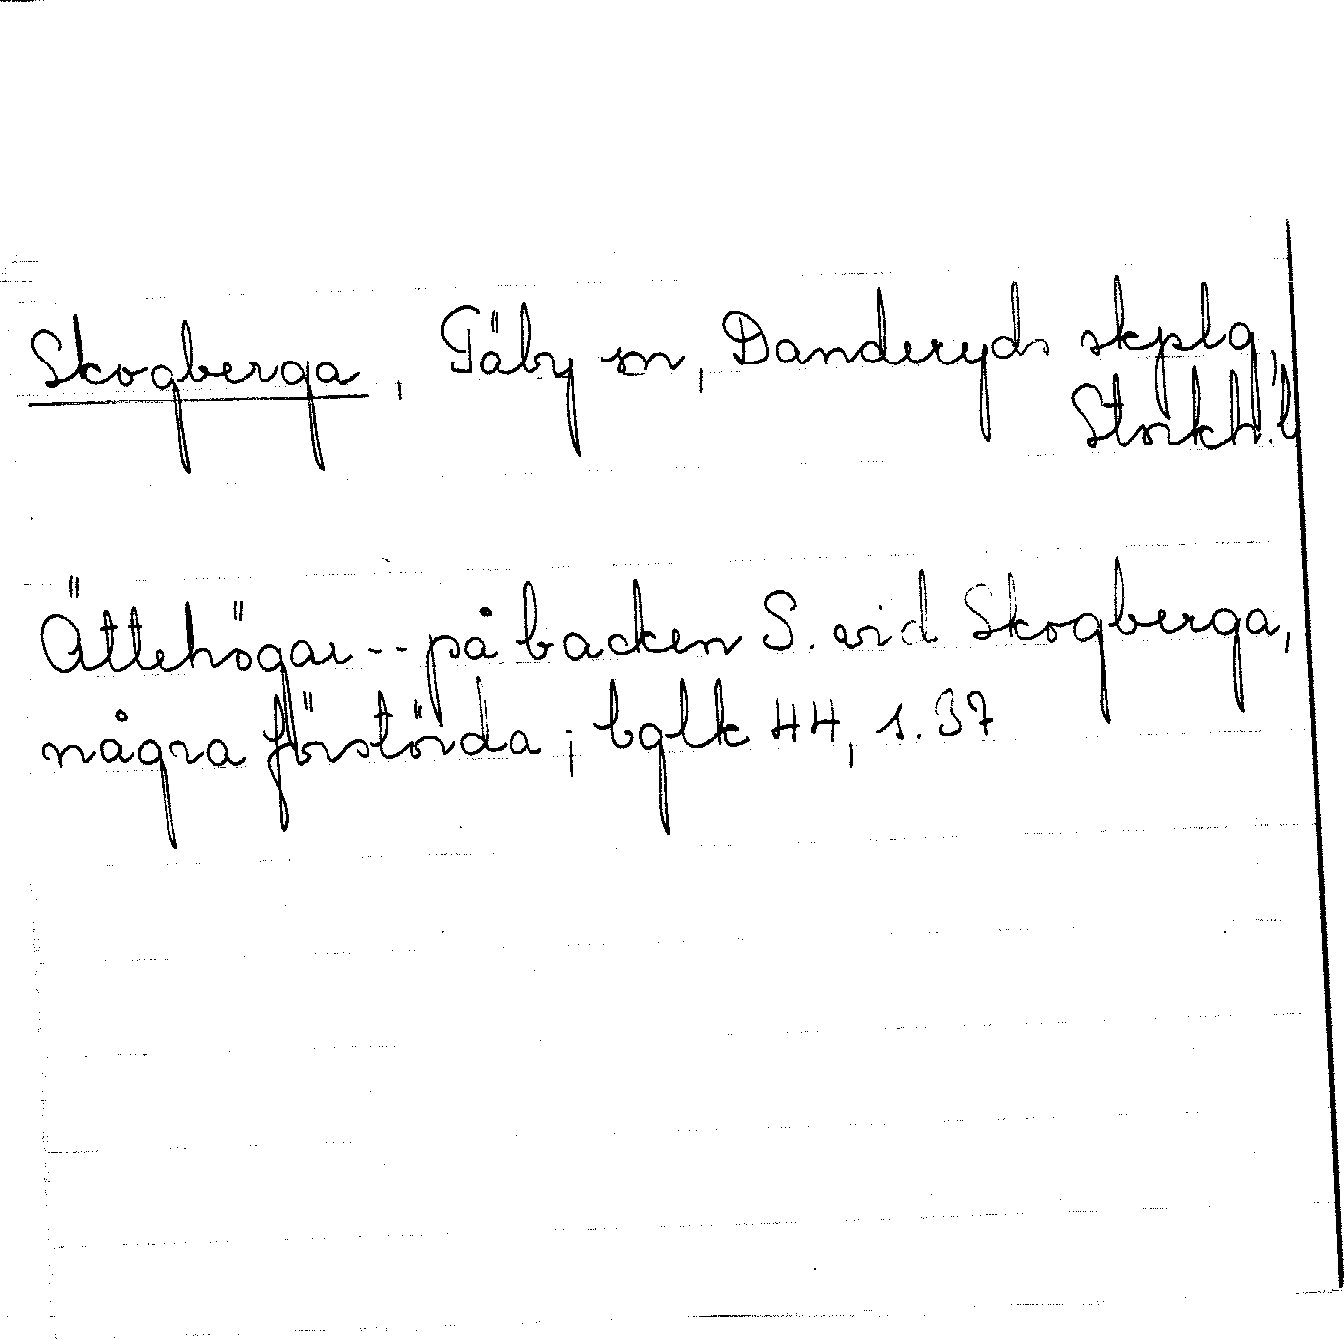 Skogberga, Täby sn, Danderyds skplg,
Stockh. l
Ättehögar -- på backen S. vid Skogberga,
några förstörda; bglk 44, s. 37